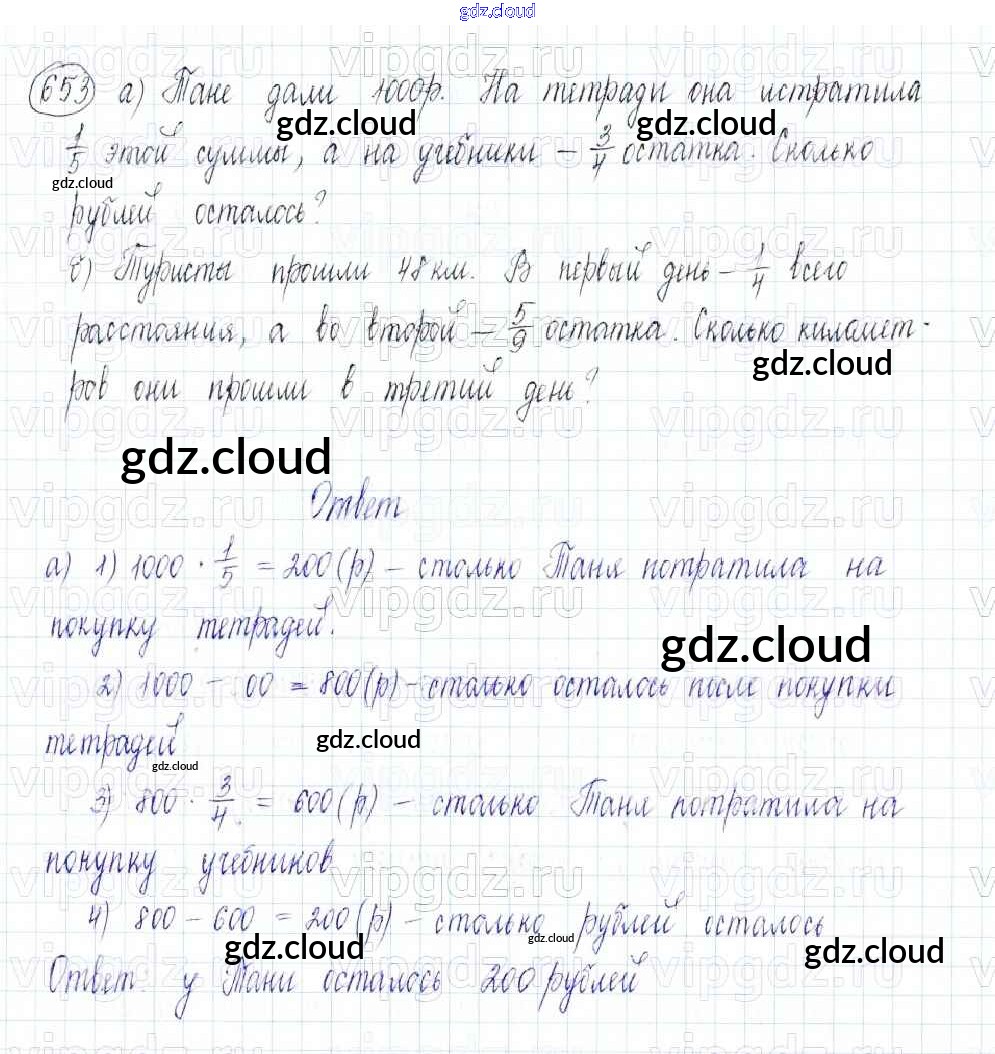 gdz.cloud
653 а) Тане дали 1000р. На тетради она истратила
gdz.cloud
1/5 этой суммы, а на учебники – 3/4 остатка. Сколько
gdz.cloud
рублей осталось?
б) Туристы прошли 48 км. В первый день – 1/4 всего
расстояния, а во второй – 5/9 остатка. Сколько километ-
gdz.cloud
ров они прошли в третий день?
gdz.cloud
Ответ
а) 1) 1000 · 1/5 = 200 (р) – столько Таня потратила на
покупку тетрадей.
gdz.cloud
2) 1000 – 00 = 800 (р) – столько осталось после покупки
тетрадей
gdz.cloud
gdz.cloud
3) 800 · 3/4 = 600 (р) – столько Таня потратила на
покупку учебников
4) 800 – 600 = 200 (р) – столько рублей осталось
gdz.cloud gdz.cloud gdz.cloud
Ответ: у Тани осталось 200 рублей